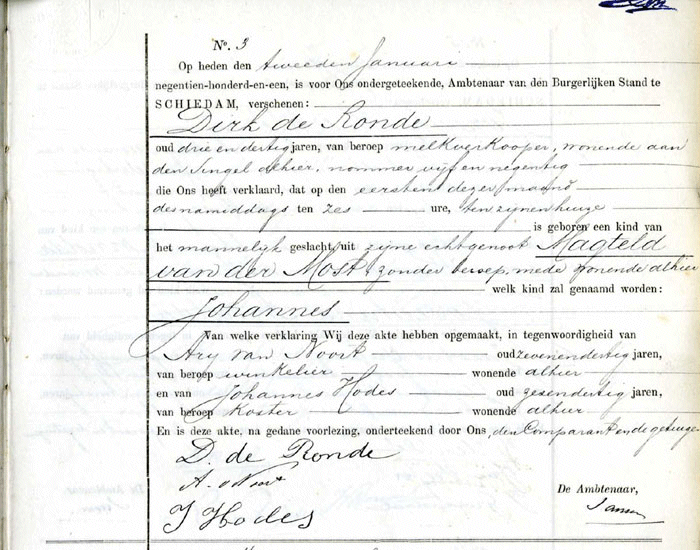 No. 3
Op heden den tweeden Januari
negentien-honderd-en-een, is voor Ons ondergeteekende, Ambtenaar van den Burgerlijken Stand te
SCHIEDAM, verschenen:
Dirk de Ronde
oud drie en dertig jaren, van beroep melkverkooper, wonende aan
den Singel alhier, nommer vijf en negentig
die Ons heeft verklaard, dat op den eersten dezer maand
desnamiddags ten zes ure, ten zijnen huize
is geboren een kind van
het mannelijk geslacht, uit zijne echtgenoot Magteld
van der Most, zonder beroep, mede wonende alhier
welk kind zal genaamd worden:
Johannes
Van welke verklaring Wij deze akte hebben opgemaakt, in tegenwoordigheid van
Ary van Noort oud zevenendertig jaren,
van beroep winkelier wonende alhier
en van Johannes Hodes oud zesendertig jaren,
van beroep Koster wonende alhier
En is deze akte, na gedane voorlezing, onderteekend door Ons, den Comparant en de getuigen
D. de Ronde
A. v Noort
De Ambtenaar,
J Hodes
Jansen